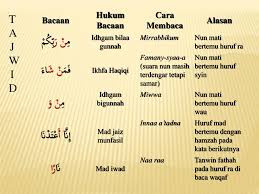 T
A
J
W
I
D
Bacaan
Hukum
Bacaan
Cara
Membaca
Alasan
مِنْ رَبِّكُمْ
Idhgam bilaa
gunnah
Mirrabbikum
Nun mati
bertemu huruf ra
فَمَنْ شَاءَ
Ikhfa Haqiqi
Famany-syaa-a
(suara nun masih
terdengar tetapi
samar)
Nun mati
bertemu huruf
syin
مِنْ وَ
Idhgam
bigunnah
Miwwa
Nun mati
bertemu huruf
wau
إِنَّا أَعْتَدْنَا
Mad jaiz
munfasil
Innaa a'tadna
Huruf mad
bertemu dengan
hamzah pada
kata berikutnya
نَارًا
Mad iwad
Naa raa
Tanwin fathah
pada huruf ra di
baca waqaf